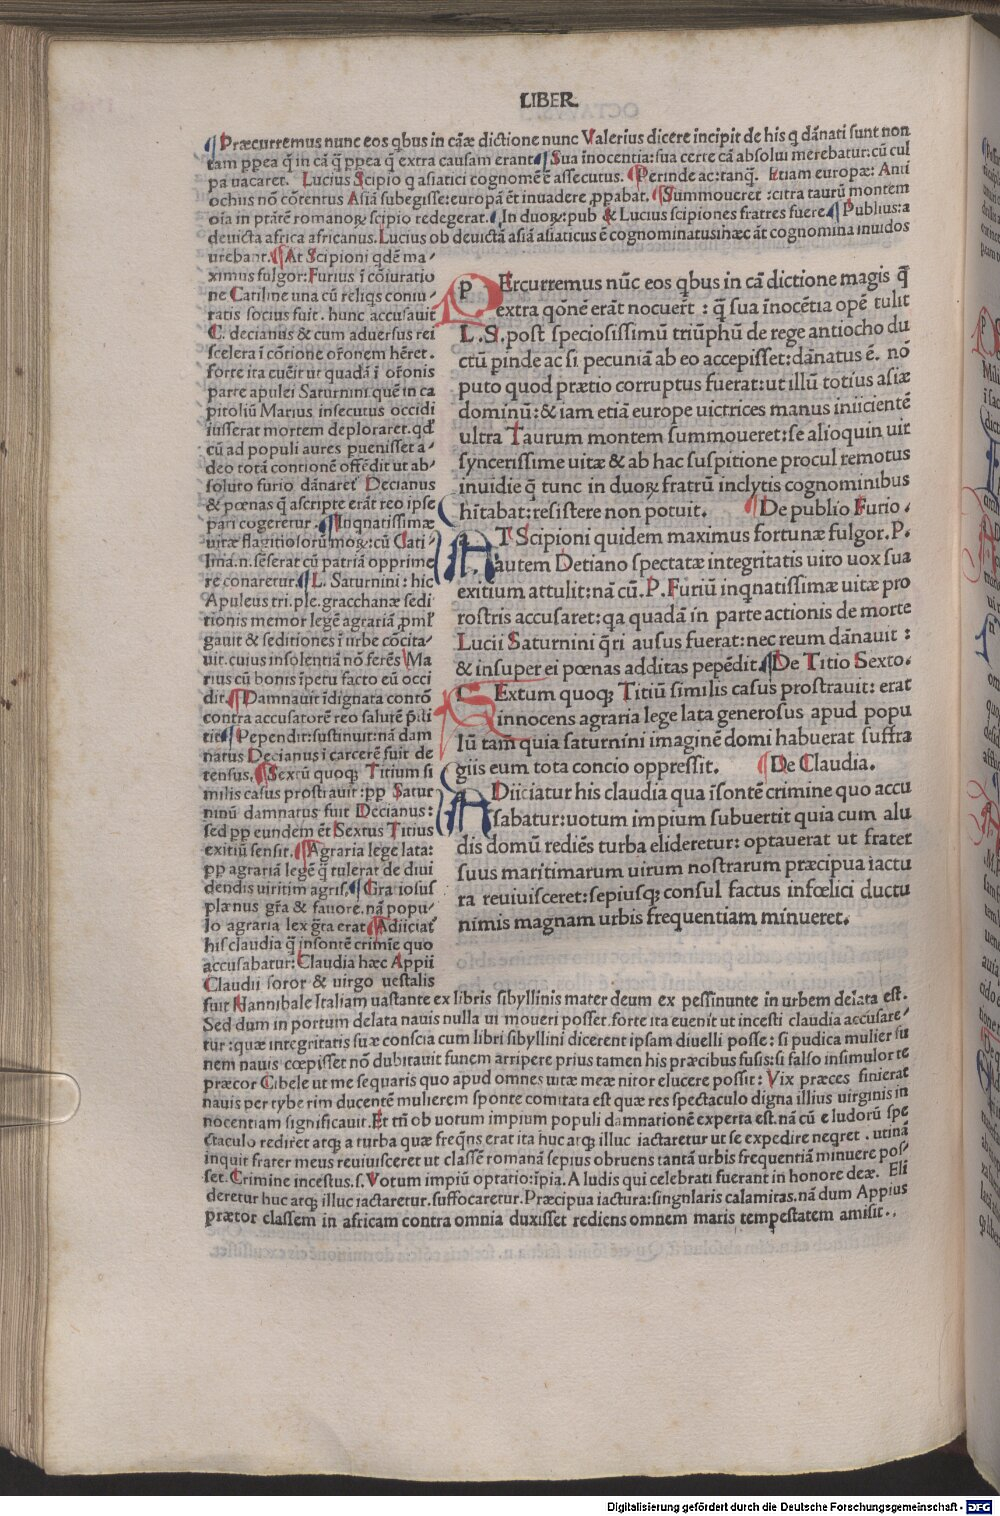 LIBER.
¶Præcurremus nunc eos qbus in cāæ dictione nunc Valerius dicere incipit de his q dānati sunt non
tam ppea q̄ in cā q̄ ppea q̄ extra causam erant¶Sua inocentia:sua certe cā absolui merebatur:cū cul
pa uacaret. Lucius Scipio q asiatici cognomē ē assecutus. ¶Perinde ac:tanq̄. Etiam europæ: Anti
ochus nō cōtentus Asiā subegisse:europā ēt inuadere ppabat. ¶Summoueret :citra taurū montem
oīa in ptātē romanoꝝ scipio redegerat.¶In duoꝝ:pub & Lucius scipiones fratres fuere¶Publius:a
deuicta africa africanus.Lucius ob deuictā asiā asiaticus ē cognominatus:hæc āt cognomina inuidos
urebant.¶At Scipioni qdē ma/
ximus fulgor:Furius ī cōiuratio
ne Catiline una cū reliqs coniu/
ratis socius fuit. hunc accusauit
C. decianus & cum aduersus rei
scelera ī cōtione orōnem hēret.
forte ita euēit ut quadā ī orōnis
parte apulei Saturnini quē in ca
pitoliū Marius insecutus occidi
iusserat mortem deploraret.qd
cū ad populi aures puenisset a/
deo totā contionē offēdit ut ab/
soluto furio dānaret Decianus
& pœnas q̄ ascripte erāt reo ipse
pati cogeretur.¶Inqnatissimæ
uitæ flagitiosorū moꝝ:cū Cati/
lina.n.sēserat cū patriā opprime
re conaretur.¶L. Saturnini: hic
Apuleus tri.ple.gracchanæ sedi
tionis memor legē agrariā pml
gauit & seditiones ī urbe cōcita/
uit.cuius insolentiā nō ferēs Ma
rius cū bonis īpetu facto eū occi
dit.¶Damnauit īdignata contō
contra accusatorē reo salutē p̄sti
tit¶Pependit:sustinuit:nā dam
natus Decianus ī carcerē fuit de
tensus.¶Sextū quoqꝫ Titium si
milis casus prostrauit:pp Satur
ninū damnatus fuit Decianus:
sed pp eundem ēt Sextus Titius
exitiū sensit.¶Agraria lege lata:
pp agrariā legē q̄ tulerat de diui
dendis uiritim agris.¶Gratiosus
plænus gr̄a & fauore.nā popu/
lo agraria lex gr̄ta erat¶Adiiciat
his claudia q̄ insontē crimīe quo
accusabatur:Claudia hæc Appii
Claudii soror & uirgo uestalis
PErcurremus nūc eos qbus in cā dictione magis q̄
extra qōnē erāt nocuert : q̄ sua inocētia opē tulit
L .S.post speciosissimū triūphū de rege antiocho du
ctū pinde ac si pecuniā ab eo accepisset:dānatus ē. nō
puto quod prætio corruptus fuerat:ut illū totius asiæ
dominū:& iam etiā europe uictrices manus iniicientē
ultra Taurum montem summoueret:se alioquin uir
syncerissime uitæ & ab hac suspitione procul remotus
inuidie q̄ tunc in duoꝝ fratrū inclytis cognominibus
hītabat:resistere non potuit. ¶De publio Furio .
AT Scipioni quidem maximus fortunæ fulgor. P.
autem Detiano spectatæ integritatis uiro uox sua
exitium attulit:nā cū.P.Furiū inqnatissimæ uitæ pro
rostris accusaret:qa quadā in parte actionis de morte
Lucii Saturnini q̄ri ausus fuerat:nec reum dānauit :
& insuper ei pœnas additas pepēdit.¶De Titio Sexto.
SExtum quoqꝫ Titiū similis casus prostrauit: erat
innocens agraria lege lata generosus apud popu
lū tam quia saturnini imaginē domi habuerat suffra
giis eum tota concio oppressit. ¶De Claudia.
ADiiciatur his claudia qua īsontē crimine quo accu
sabatur:uotum impium subuertit quia cum alu
dis domū rediēs turba elideretur: optauerat ut frater
suus maritimarum uirum nostrarum præcipua iactu
ra reuiuisceret:sepiusqꝫ consul factus infœlici ductu
nimis magnam urbis frequentiam minueret.
fuit Hannibale Italiam uastante ex libris sibyllinis mater deum ex pessinunte in urbem delata est.
Sed dum in portum delata nauis nulla ui moueri posset.forte ita euenit ut incesti claudia accusare/
tur:quæ integritatis suæ conscia cum libri sibyllini dicerent ipsam diuelli posse: si pudica mulier fu
nem nauis cœpisset nō dubitauit funem arripere prius tamen his præcibus fusis:si falso insimulor te
præcor Cibele ut me sequaris quo apud omnes uitæ meæ nitor elucere possit: Vix præces finierat
nauis per tyberim ducentē mulierem sponte comitata est quæ res spectaculo digna illius uirginis in
nocentiam significauit.Et tn̄ ob uotum impium populi damnationē experta est.nā cū e ludorū spe
ctaculo rediret atqꝫ a turba quæ freqn̄s erat ita huc atqꝫ illuc iactaretur ut se expedire neqret . utinā
inquit frater meus reuiuisceret ut classē romanā sepius obruens tantā urbis frequentiā minuere pos/
set.Crimine incestus.s.Votum impiū optatio:īpia.A ludis qui celebrati fuerant in honore deæ. Eli
deretur huc atqꝫ illuc iactaretur.suffocaretur.Præcipua iactura:singnlaris calamitas.nā dum Appius
prætor classem in africam contra omnia duxisset rediens omnem maris tempestatem amisit..
Digitalisierung gefördert durch die Deutsche Forschungsgemeinschaft - DFG